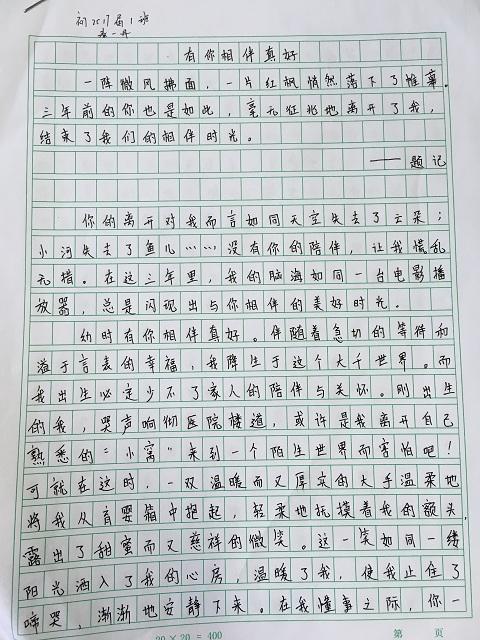 初2517届1班
有你相伴真好
一阵微风拂面，一片红枫悄然落下了帷幕。
三年前的你也是如此，毫无征兆地离开了我，
结束了我们的相伴时光。
——题记
你的离开对我而言如同天空失去了云朵；
小河失去了鱼儿……没有你的陪伴，让我慌乱
无措。在这三年里，我的脑海如同一台电影播
放器，总是闪现出与你相伴的美好时光。
幼时有你相伴真好。伴随着急切的等待和
溢于言表的幸福，我降生于这个大千世界。而
我出生必定少不了家人的陪伴与关怀。刚出生
的我，哭声响彻医院楼道，或许是我离开自己
熟悉的“小窝”来到一个陌生世界而害怕吧！
可就在这时，一双温暖而又厚实的大手温柔地
将我从育婴箱中抱起，轻柔地抚摸着我的额头，
露出了甜蜜而又慈祥的微笑。这一笑如同一缕
阳光洒入了我的心房，温暖了我，使我止住了
啼哭，渐渐地安静下来。在我懂事之际，你一
20×20=400 第 页